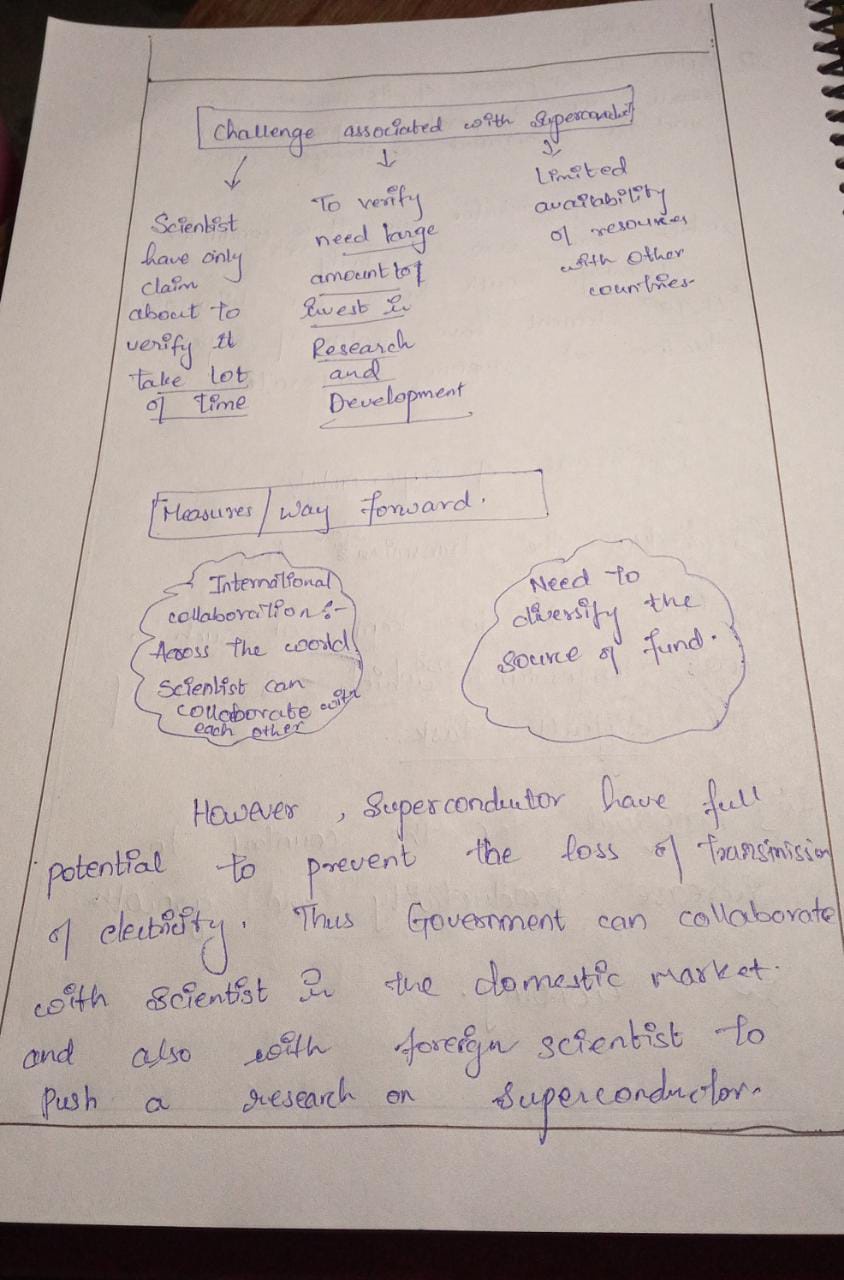 Challenge associated with Supercondut
Scientist
have only
claim
about to
verify it
take lot
of time
To verify
need large
amount to
Invest in
Research
and
Development
Limited
availability
of resources
with other
countries-
Measures/way forward.
International
collaboration :-
Across the world
Scientist can
collaborate with
each other
Need to
diversify the
source of fund.
However, Superconductor have full
potential to prevent the loss of Transmission
of electricity. Thus Government can collaborate
with Scientist in the domestic market.
and also with foreign scientist to
Push a research on superconductor.